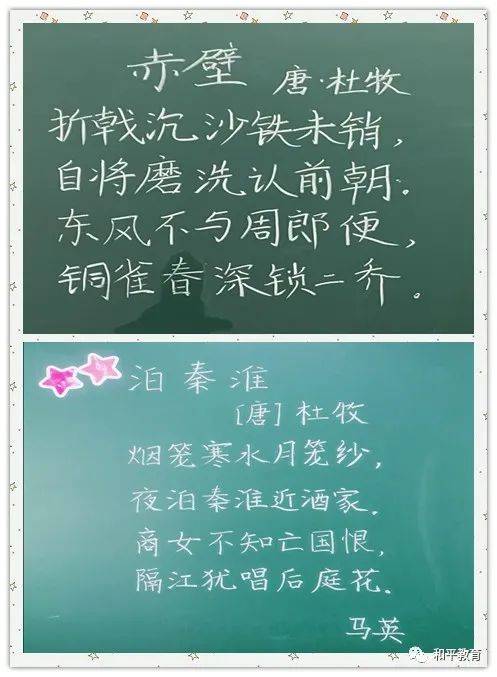 赤壁
唐·杜牧
折戟沉沙铁未销，
自将磨洗认前朝.
东风不与周郎便，
铜雀春深锁二乔。
泊秦淮
[唐]杜牧
烟笼寒水月笼纱，
夜泊秦淮近酒家.
商女不知亡国恨，
隔江犹唱后庭花.
马英
和平教育